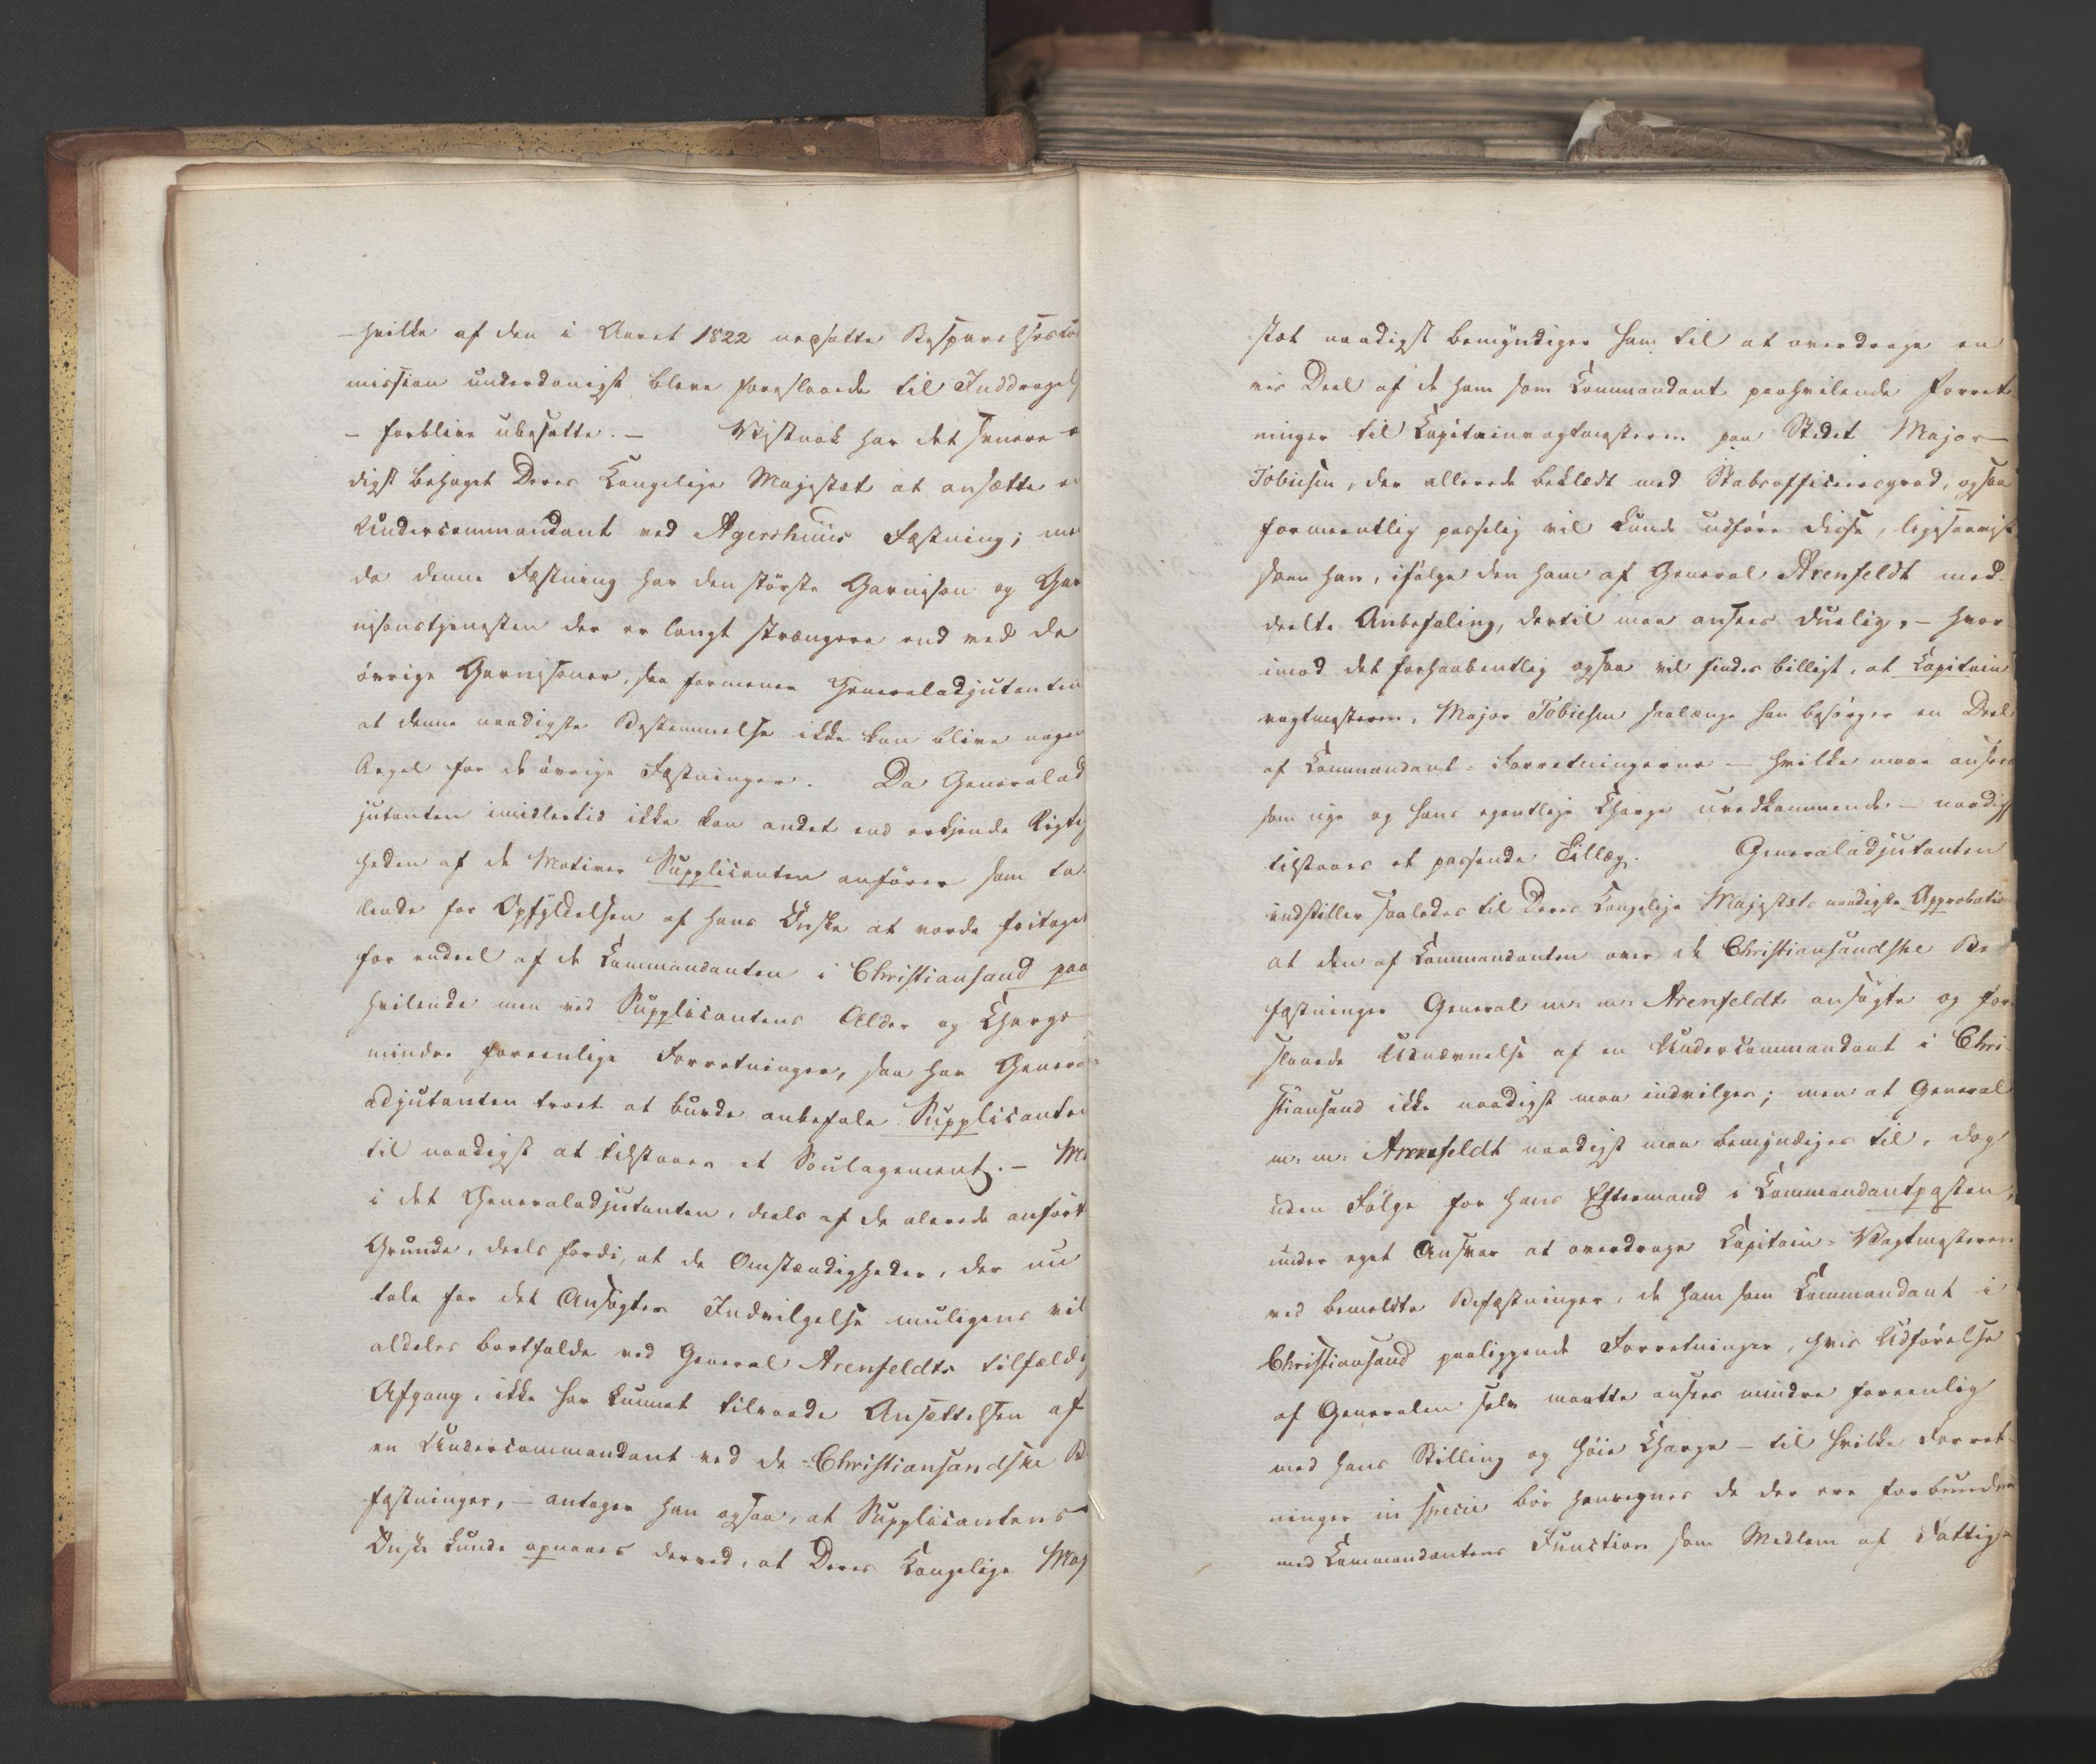 – hvilke af den i Aaret 1822 nedsatte Besparelsesco
mission underdanigst bleve foreslaaede til Inddragels
– forblive ubesatte. – Vistnok har det senere
digst behaget Deres Kongelige Majestæt at ansætte e
Undercommandant ved Agershuus Fæstning; me
da denne Fæstning har den störste Garnison og Gar
nisonstjenesten der er langt strængere end ved de
övrige Garnisoner, saa formener Generaladjutanten
at denne naadigste Bestemmelse ikke kan blive nogen
Regel for de övrige Fæstninger. Da Generalad
jutanten imidlertid ikke kan andet end erkjende Rigtig
heden af de Motiver Supplicanten anförer som ta-
lende for Opfyldelsen af hans Önske at vorde fritaget
for endeel af de Commandanten i Christiansand paa
hvilende men ved Supplicantens Alder og Charge
mindre foreenlige Forretninger, saa har General
adjutanten troet at burde anbefale Supplicanten
til naadigst at tilstaaes et Soulagement. – Me
i det Generaladjutanten, deels af de alerede anfört
Grunde, deels fordi, at de Omstændigheder, der nu
tale for det Ansögtes Indvilgelse muligens vil
aldeles bortfalde ved General Arenfeldts tilfældi
Afgang, ikke har kunnet tilraade Ansættelsen af
en Undercommandant ved de Christiansandske B
fæstninger, – antager han ogsaa, at Supplicantens
Önske kunde opnaaes derved, at Deres Kongelige Maj
stæt naadigst bemyndiger ham til at overdrage en
vis Deel af de ham som Commandant paahvilende Forret
ninger til Capitainvagtmesteren paa Stedet Major
Tobiesen, der allerede beklædt med Stabsofficiersgrad, ogsaa
formeentlig passelig vil kunde udföre disse, ligesaavist
som han, ifölge den ham af General Arenfeldt med-
deelte Anbefaling, dertil maa ansees duelig, – hvor
imod det forhaabentlig ogsaa vil findes billigt, at Capitain
vagtmesteren, Major Tobiesen saalænge han besörger en Deel
af Commandant-Forretningerne – hvilke maae ansees
som nye og hans egentlige Charge uvedkommende – naadigst
tilstaaes et passende Tillæg. Generaladjutanten
indstiller saaledes til Deres Kongelige Majestæts naadigste Approbation
at den af Commandanten over de Christiansandske Be
fæstninger General m: m: Arenfeldt ansögte og for
slaaede Udnævnelse af en Undercommandant i Chri-
stiansand ikke naadigst maa indvilges; men at General
m: m: Arenfeldt naadigst maa bemyndiges til, dog
uden Fölge for hans Eftermand i Commandantposten,
under eget Ansvar at overdrage Capitain-Vagtmesteren
ved bemeldte Befæstninger, de ham som Commandant i
Christiansand paaliggende Forretninger, hvis Udförelse
af Generalen selv maatte ansees mindre foreenlig
med hans Stilling og höie Charge – til hvilke Forret-
ninger in specie bör henregnes de der ere forbundne
med Commandantens Function som Medlem af Fattig-